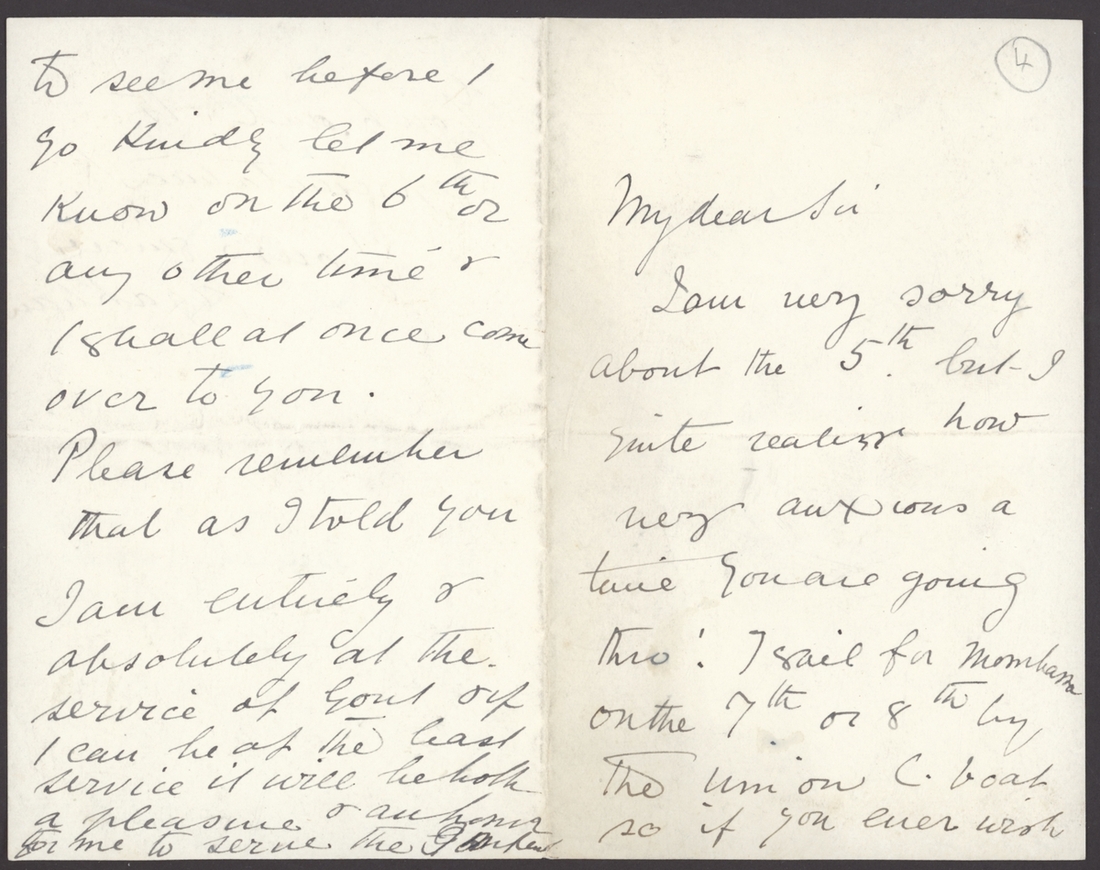 4
My dear Sir
I am very sorry
about the 5th. but I
quite realize how
very anxious a
time you are going
thro'! I sail for Mombassa
on the 7th or 8th by
the Union C. boat
so if you ever wish
to see me before I
go Kindly let me
Know on the 6th or
any other time &
I shall at once come
over to you.
Please remember
that as I told you
I am entirely &
absolutely at the
service of Govt & if
I can be of the least
service it will be both
a pleasure & an honor
for me to serve the